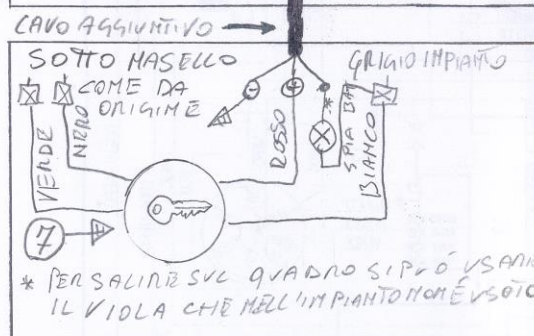 CAVO AGGIUNTIVO
SOTTO NASELLO
COME DA
ORIGINE
GRIGIO IMPIANTO
VERDE
NERO
ROSSO
*
SPIA BA
BIANCO
7
* PER SALIRE SUL QUADRO SI PUÓ USARE
IL VIOLA CHE NELL'IMPIANTO NON É